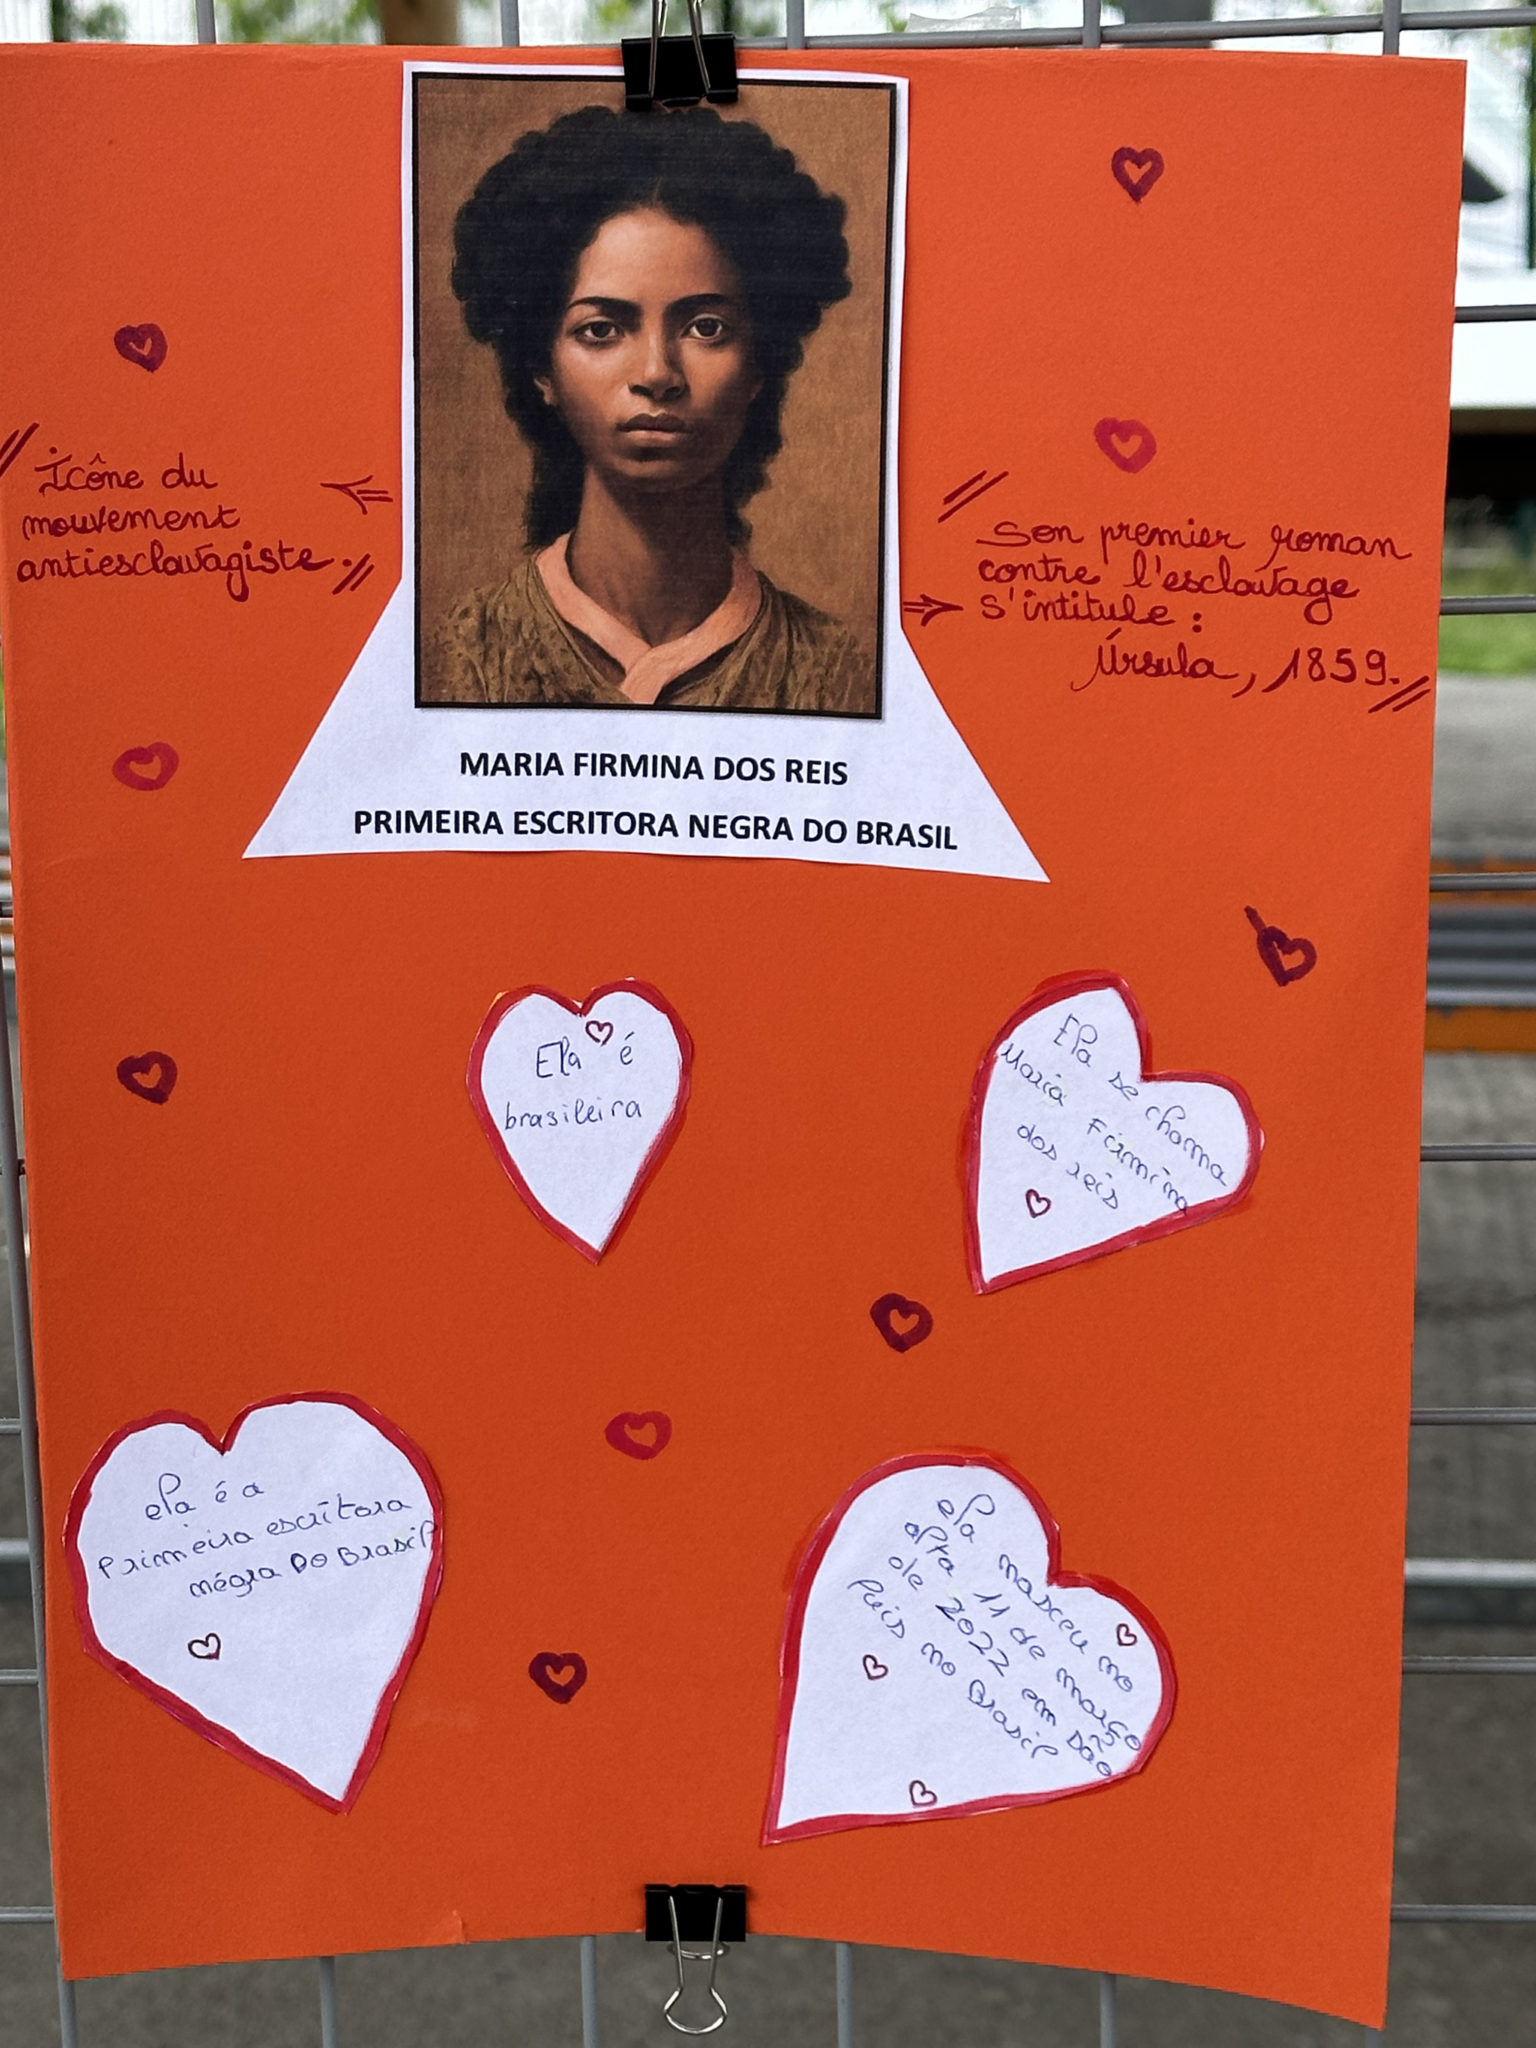 Icône du
mouvement
antiesclavagiste.
Son premier roman
contre l'esclavage
s'intitule :
Úrsula, 1859.
MARIA FIRMINA DOS REIS
PRIMEIRA ESCRITORA NEGRA DO BRASIL
Ela é
brasileira
Ela se chama
Maria Firmina
dos reis
ela é a
Primeira escritora
négra Do Brasil
ela nasceu no
11 de março
de 2022 em são
luis no Brasil